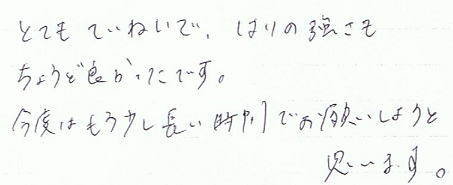 とても ていねいで、はりの強さも
ちょうど良かったです。
今度はもう少し長い時間でお願いしようと
思います。